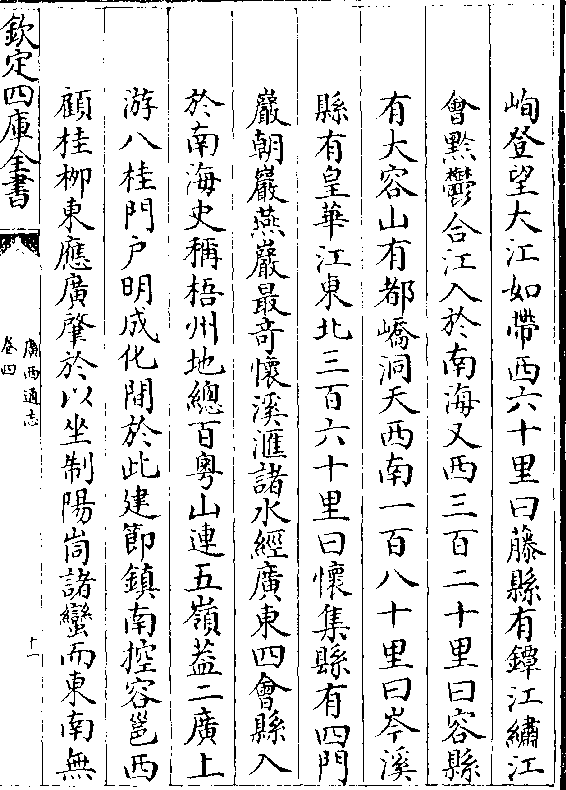 峋登望大江如帶西六十里曰藤縣有鐔江繡江
會黔鬱合江入於南海又西三百二十里曰容縣
有大容山有都嶠洞天西南一百八十里曰岑溪
縣有皇華江東北三百六十里曰懷集縣有四門
巖朝巖燕巖最竒懷溪滙諸水經廣東四會縣入
於南海史稱梧州地總百粤山連五嶺葢二廣上
游八桂門户明成化間於此建節鎮南控容邕西
顧桂栁東應廣肇於以坐制陽峝諸蠻而東南無
欽定四庫全書
廣西通志
卷四
十一